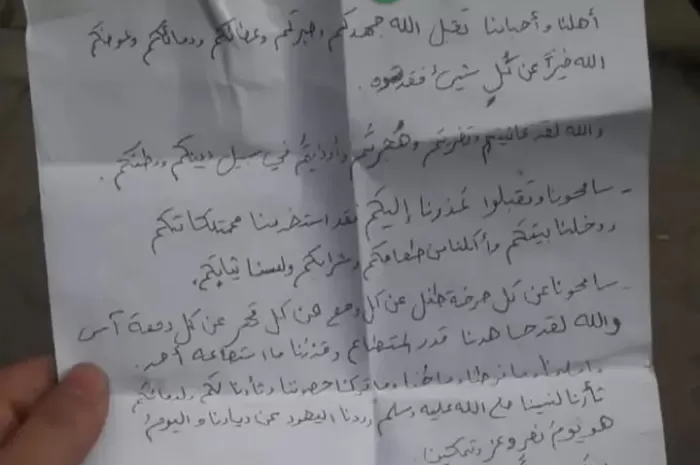 أهلنا وأحبابنا تقبل الله جهدكم وصبركم وعطائكم ودمائكم وعوضكم
الله خيرًا عن كل شيئ فقدتموه .
والله لقد عانيتم وتضررتم وهُجرتم وأوذيتم في سبيل دينكم ووطنكم .
- سامحونا وتقبلوا عُذرنا إليكم فقد استخدمنا ممتلكاتكم
ودخلنا بيتكم وأكلنا من طعامكم وشرابكم ولبسنا ثيابكم
- سامحونا عن كل صرخة طفل عن كل وجع عن كل قهر عن كل دمعة آسى
والله لقد جاهدنا قدر المستطاع وقدمنا ما استطاعه أحد .
وما فرطنا وما خنا وما تركنا حصوننا وثأرنا لكم ولدمائكم
ثأرنا لنبينا صلى الله عليه وسلم رددنا اليهود عن ديارنا واليوم
هو يوم نصر وعز وتمكين .